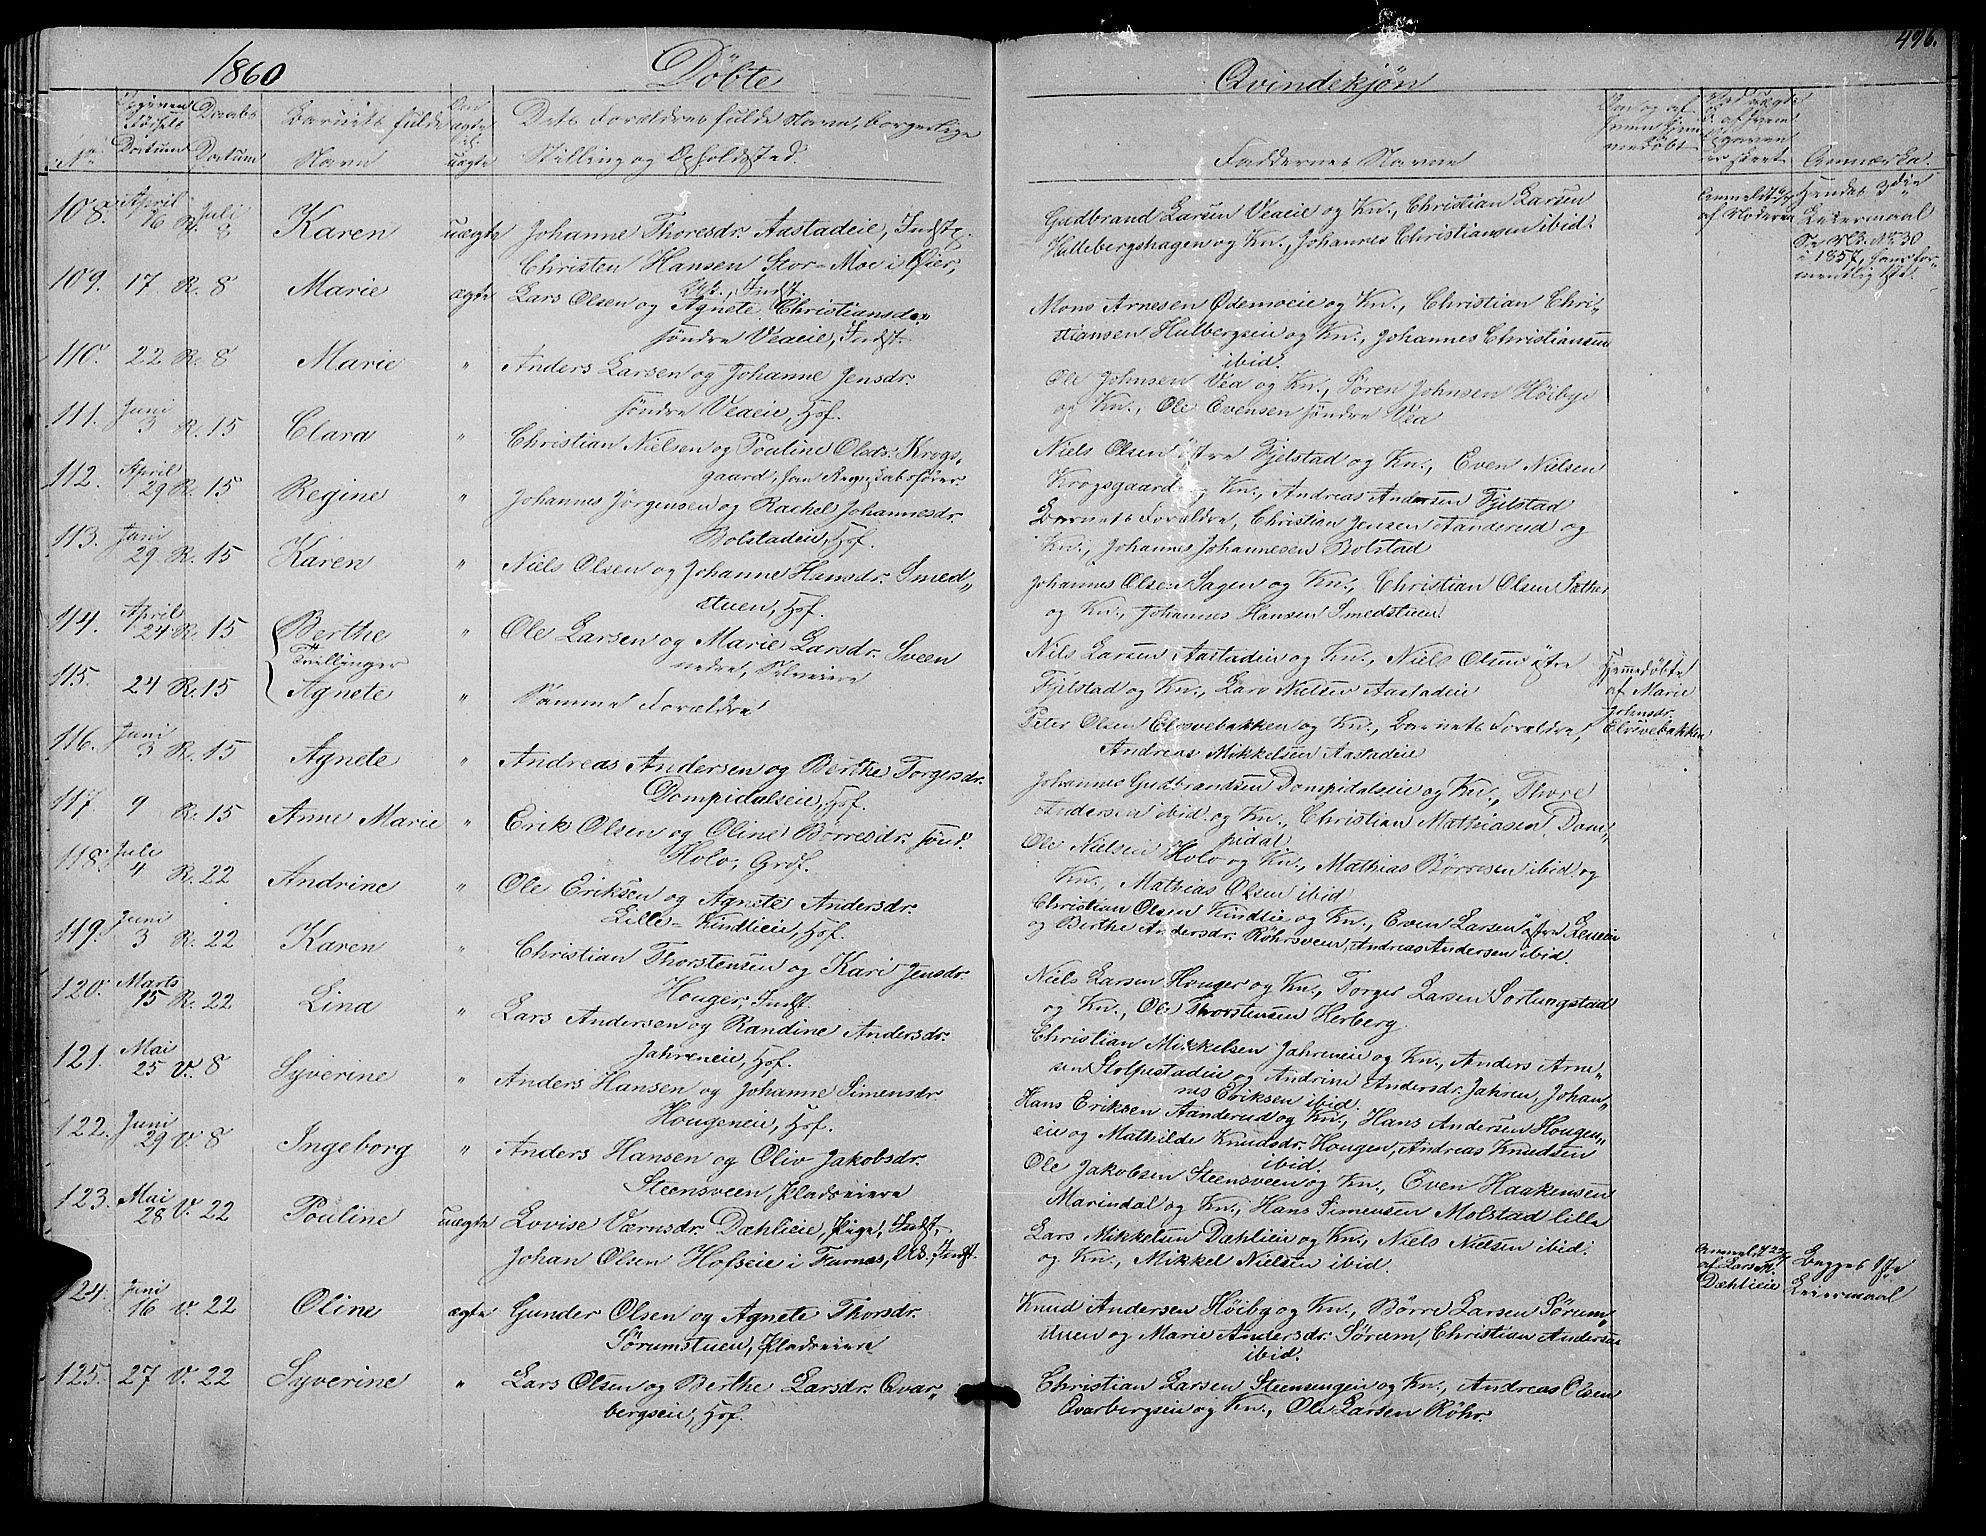 496.
1860 Döbte Qvindekjön
No. Opgiven Födsels Datum Daabs Datum Barnets fulde Navn Om ægte el. uægte Dets Forældres fulde Navn, borgerlige Stilling og Opholdssted. Faddernes Navne Anmærkn.
108. April 16 R. Juli 8 Karen uægte Johanne Thoresdr. Aastadeie, Indst.
Christen Hansen Stor-Moe i Öier,
Gudbrand Larsen Veaeie og Kn., Christian Larsen
Hullebergshagen og Kn., Johannes Christiansen ibid.
Anmeldt af Moderen
Hendes 3die
Leiermaal
Se No. 30
i 1857, hans for-
mentlig 1ste.
109. 17 R. 8 Marie ægte Lars Olsen og Agnete Christiansdr.
söndre Veaeie, Indst.
Mons Arnesen Ödemoeie og Kn., Christian Chri-
stiansen Hulbergseie og Kn., Johannes Christiansen
ibid.
110. 22 R. 8 Marie " Anders Larsen og Johanne Jensdr.
söndre Veaeie, Hsf.
Ole Johnsen Vea og Kn., Sören Johnsen Höibye
og Kn., Ole Evensen söndre Vea
111. Juni 3 R. 15 Clara " Christian Nielsen og Pouline Olsdr. Krogs-
gaard, Regnskabsförer
Niels Olsen östre Fjelstad og Kn., Even Nielsen
Krogsgaard og Kn., Andreas Andersen Fjelstad
112. April 29 R. 15 Regine " Johannes Jörgensen og Rachel Johannesdr.
Bolstadeie, Hsf.
Barnets Forældre, Christian Jensen Aanderud og
Kn., Johannes Johannesen Bolstad
113. Juni 29 R. 15 Karen " Niels Olsen og Johanne Hansdr. Smed-
stuen, Hsf.
Johannes Olsen Sagen og Kn., Christian Olsen Sæther
og Kn., Johannes Hansen Smedstuen
114. April 24 R. 15 Berthe " Ole Larsen og Marie Larsdr. Sveen
nedre, Selveiere
Tvillinger
Nils Larsen Aastadeie og Kn., Niels Olsen östre
Fjelstad og Kn., Lars Nielsen Aastadeie
Hjemdöbte
af Marie
Johnsdr.
Elvsvebakken
115. 24 R. 15 Agnete " Samme Forældre
Peter Olsen Elvsvebakken og Kn., Barnets Forældre,
Andreas Mikkelsen Aastadeie
116. Juni 3 R. 15 Agnete " Andreas Andersen og Berthe Torgersdr.
Dompidalseie, Hsf.
Johannes Gudbrandsen Dompidalseie og Kn., Thore
Andersen ibid. og Kn., Christian Mathiasen Dom-
pidal
117. 9 R. 15 Anne Marie " Erik Olsen og Oline Börresdr. sönd.
Holo, Grdf.
Ole Nielsen Holo og Kn., Mathias Börresen ibid. og
Kn., Mathias Olsen ibid
118. Juli 4 R. 22 Andrine " Ole Eriksen og Agnete Andersdr.
Lille-Kindlieie, Hsf.
Christian Olsen Kindlie og Kn., Even Larsen östre
og Berthe Andersdr. Röhrsveen, Andreas Andersen ibid.
119. Juni 3 R. 22 Karen " Christian Thorstensen og Kari Jensdr.
Houger, Indst.
Niels Larsen Houger og Kn., Torger Larsen Sortungstad
og Kn., Ole Thorstensen Herberg
120. Marts 15 R. 22 Lina " Lars Andersen og Randine Andersdr.
Jahreneie, Hsf.
Christian Mikkelsen Jahreneie og Kn., Anders Arne-
sen Stolpestadeie og Andrine Andersdr. Jahren, Johan-
nes Eriksen ibid.
121. Mai 25 V. 8 Syverine " Anders Hansen og Johanne Simensdr.
Hougeneie, Hsf.
Hans Eriksen Aanderud og Kn., Hans Andersen Hougen-
eie og Mathilde Knudsdr. Hougen, Andreas Knudsen
ibid.
122. Juni 29 V. 8 Ingeborg " Anders Hansen og Oliv Jakobsdr.
Steensveen, Pladseiere
Ole Jakobsen Steensveen og Kn., Even Haakensen
Marindal og Kn., Hans Simensen Molstad lille
123. Mai 28 V. 22 Pouline uægte Lovise Værnsdr. Dæhlieie, Pige, Indst.,
Johan Olsen Hofseie i Furnes, Ur., Indst.
Lars Mikkelsen Dæhlieie og Kn., Niels Nielsen ibid.
og Kn., Mikkel Nielsen ibid.
Anmeldt af Lars M.
Dæhlieie
Begges 1ste
Leiermaal
124. Juni 16 V. 22 Oline ægte Gunder Olsen og Agnete Thorsdr.
Sörumstuen, Pladseiere
Knud Andersen Höiby og Kn., Börre Larsen Sörum-
stuen og Marie Andersdr. Sörum, Christian Andersen
ibid.
125. 27 V. 22 Syverine " Lars Olsen og Berthe Larsdr. Qvar-
bergseie, Hsf.
Christian Larsen Steensengeie og Kn., Andreas Olsen
Qvarbergseie og Kn., Ole Larsen Röhr.